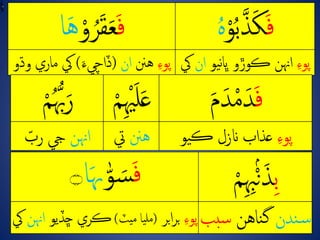 فَكَذَّبُوْهُ فَعَقَرُوْهَا
پوءِ انهن ڪوڙو ڀانيو ان کي پوءِ هنن ان (ڏاچيءَ) کي ماري وڌو
فَدَمْدَمَ عَلَيْهِمْ رَبُّهُمْ
پوءِ عذاب نازل ڪيو هنن تي انهن جي ربّ
بِذَنْۢبِهِمْ فَسَوّٰىهَا
سندن گناهن سبب پوءِ برابر (مليا ميٽ) ڪري ڇڏيو انهن کي